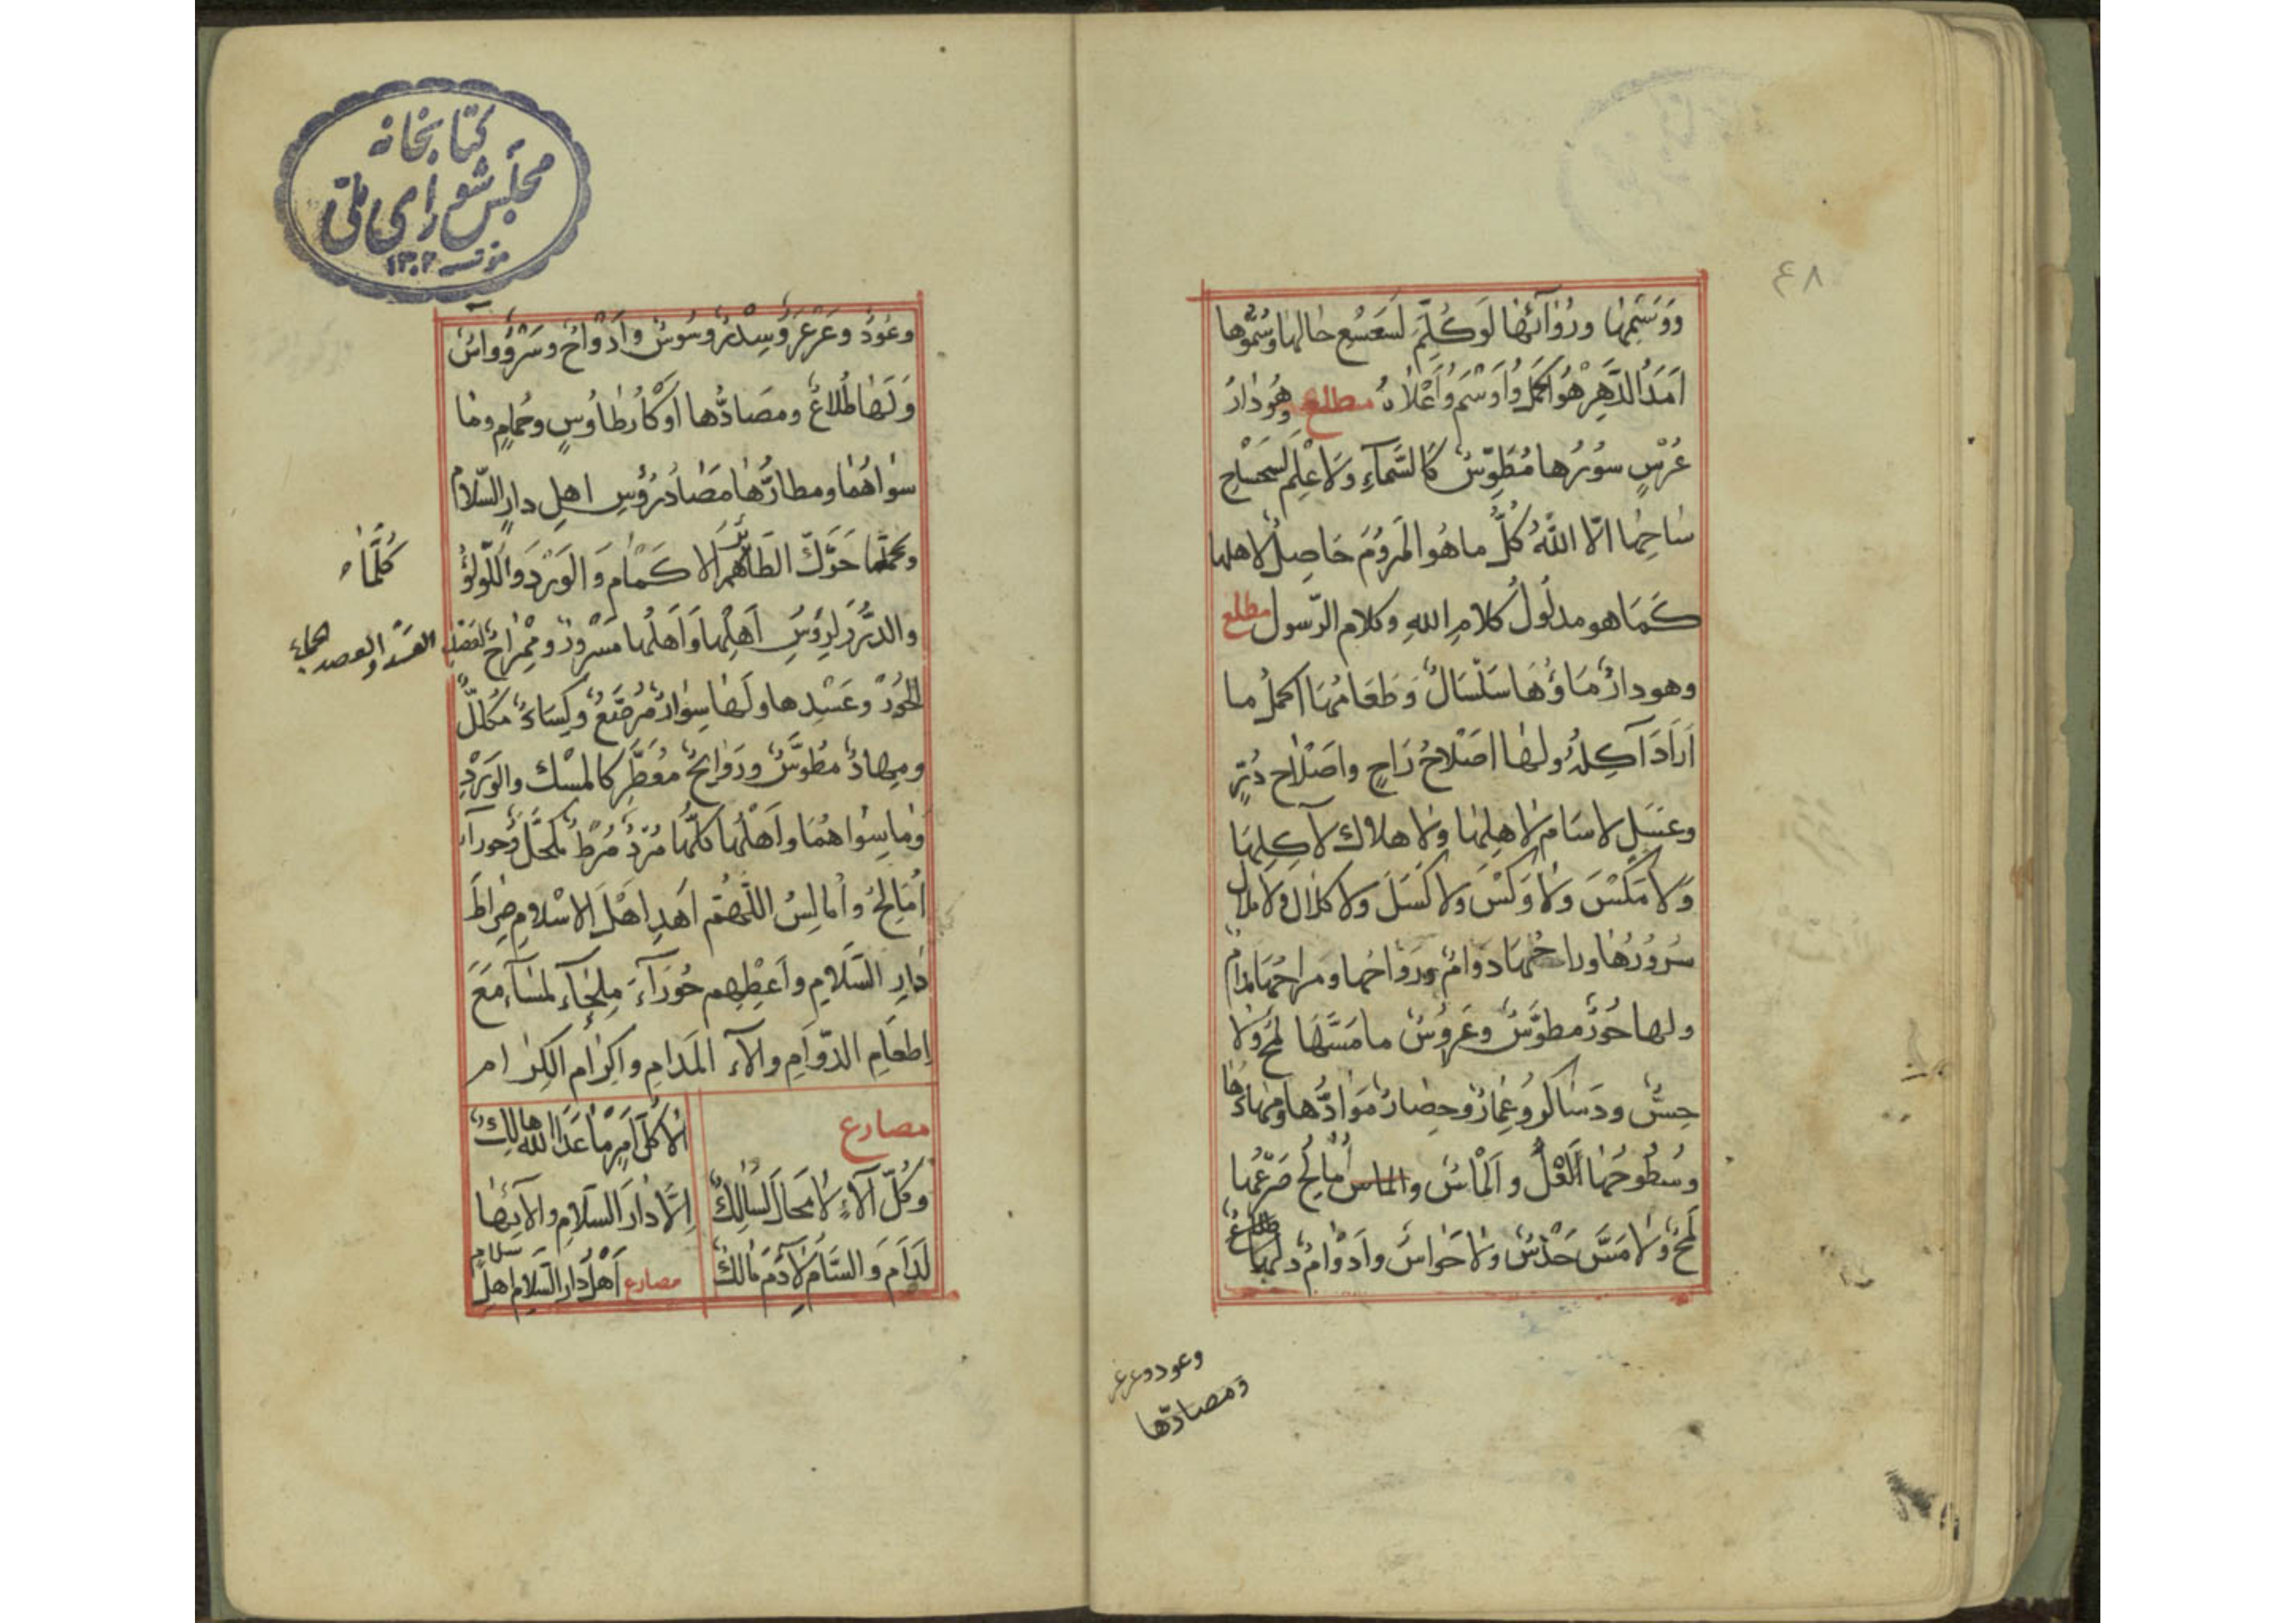 ٤٨
ووسمها ورُوَآئها لو كُلِّمَ لسعسع حالها وسُمُوّها
اَمَدَ الدَّهرِ هُوَ اكملُ وَاَوسَمُ وَاَعْلَاهُ مطلع وهُوَ دارُ
عُرْسٍ سُورُها مُطَوَّسٌ كالسَّمآءِ ولا عِلْمَ لِمِسْحَاحِ
ساحِها الّا اللهُ كُلُّ ما هُوَ المَرُومُ حاصِلٌ لاهلها
كَمَا هو مدلُولُ كلامِ اللهِ وكلام الرّسول مطلع
وهو دارٌ مَاؤُهَا سَلْسَالٌ وَطَعَامُهَا اكملُ ما
اَرَادَ آكِلُهُ ولها اَصْلَاحُ رَاحٍ واَصْلَاح دُرٍّ
وعَسَلٍ لا سَامَ لاهلِها ولا هلاك لآكِلِهَا
وَلا مَكْسَ ولا وَكْسَ ولا كَسَلَ ولا كلال ولا ملال
سُرُورُهَا وراحُها دَوَامٌ ورَوَاحُها ومراحُهَا مُدام
ولها حُورٌ مطوَّسٌ وعَرُوسٌ ما مَسَّهَا لمحٌ ولا
حِسٌّ ودساكر وعِمَارٌ وحِصَارٌ مَوَادُّها ومِهادُهَا
وسُطُوحُهَا لَعْلٌ و اَلْمَاسٌ اُمَالِحُ صَرْعُهَا
لَمْحٌ ولا مَسَّ حَدْسٌ ولا حَوَاسٌ واَدْوَامٌ ولها طَلْعٌ
وعود وعرعر
ومصادّها
كتابخانه
مجلس شورای ملّی
مؤسسه ۱۳۰۲
وعُودٌ وعَرْعَرٌ وسِدْرٌ وسُوسٌ واَدْوَاحٌ وسَرْوٌ واسٌ
وَلَها طُلاعٌ ومصَادُّها اَوْكَارُ طاوُسٍ وحُمَامٍ وما
سواهُمَا ومطارُّها مَصَادُ رُؤسِ اهلِ دارِ السّلام
وكُلَّمَا حَرَّكَ الطَّائِرُ الاكمام وَالوَرْدَ وَاللّولؤُ
كُلَّمَا
والدُّرَّ لِرُؤسِ اَهلِها وَاَهلُها مسْرُورٌ ومِمْرَاحٌ
الحُورُ وعَسْدِها ولها سِوَارٌ مُرصَّعٌ وكِسَاءٌ مُكَلَّلٌ
ومِهادٌ مطَوَّسٌ ورَوَائحُ مُعَطَّر كالمسْك والوَرْدِ
وما سِواهُمَا واَهْلُها كلُّها مُرْدٌ مُرْطٌ مُكَحَّلٌ وحورآء
اُمَالِحُ واُمَالِسُ اللّهُمَّ اهدِ اَهْلَ الاسْلامِ صِراطَ
دَارِ السَّلَامِ واَعْطِهِم حُورَآءَ مِلِحَآءَ لمسَآءَ مَعَ
اِطعَامِ الدَّوَامِ والآءِ المُدَامِ واكِرَامِ الكِرَامِ
مصارع
الا كُلُّ اَمْرٍ مَا عَدَا اللهَ هالِكٌ
وكُلُّ آلَاءٍ لا مَحَالَ لسَالِكٍ
اِلَّا دَارَ السَّلَامِ والآئِهَا
لَدَامَ وَالسَّامُ لِآدَمَ مَالِكٌ
مصارع اَهْلُ دارِ السَّلامِ اهلُ سلامٍ